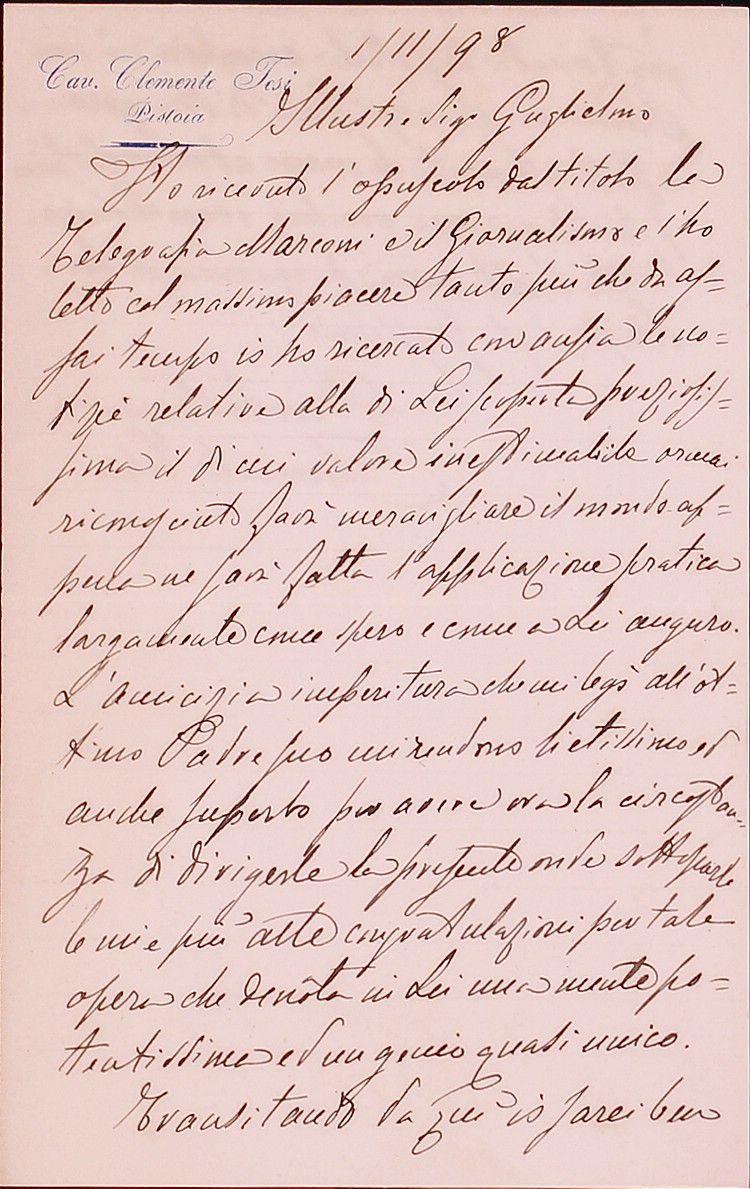 1/11/98
Cav. Clemente Tesi
Pistoia
Illustre Sigr Guglielmo
Ho ricevuto l'opuscolo dal titolo la
Telegrafia Marconi e il Giornalismo e l'ho
letto col massimo piacere tanto più che da as=
sai tempo io ho ricercato con ansia le no=
tizie relative alla di Lei scoperta preziosis=
sima il di cui valore inestimabile ormai
riconosciuto farà meravigliare il mondo ap=
pena ne sarà fatta l'applicazione pratica
largamente come spero e come a Lei auguro.
L'amicizia imperitura che mi legò all'ot=
timo Padre suo mi rendono lietissimo ed
anche superbo per avere ora la circostan=
za di dirigerle la presente onde sottoporle
le mie più alte congratulazioni per tale
opera che denota in Lei una mente po=
tentissima ed un genio quasi unico.
Transitando da quì io sarei ben